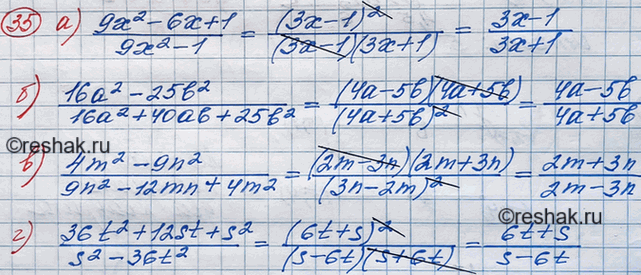 35 а) (9x² - 6x + 1)/(9x² - 1) = (3x - 1)²/((3x - 1)(3x + 1)) = (3x - 1)/(3x + 1)
б) (16a² - 25b²)/(16a² + 40ab + 25b²) = ((4a - 5b)(4a + 5b))/(4a + 5b)² = (4a - 5b)/(4a + 5b)
©reshak.ru
в) (4m² - 9n²)/(9n² - 12mn + 4m²) = ((2m - 3n)(2m + 3n))/(3n - 2m)² = (2m + 3n)/(2m - 3n)
г) (36t² + 12st + s²)/(s² - 36t²) = (6t + s)²/((s - 6t)(s + 6t)) = (6t + s)/(s - 6t)
©reshak.ru